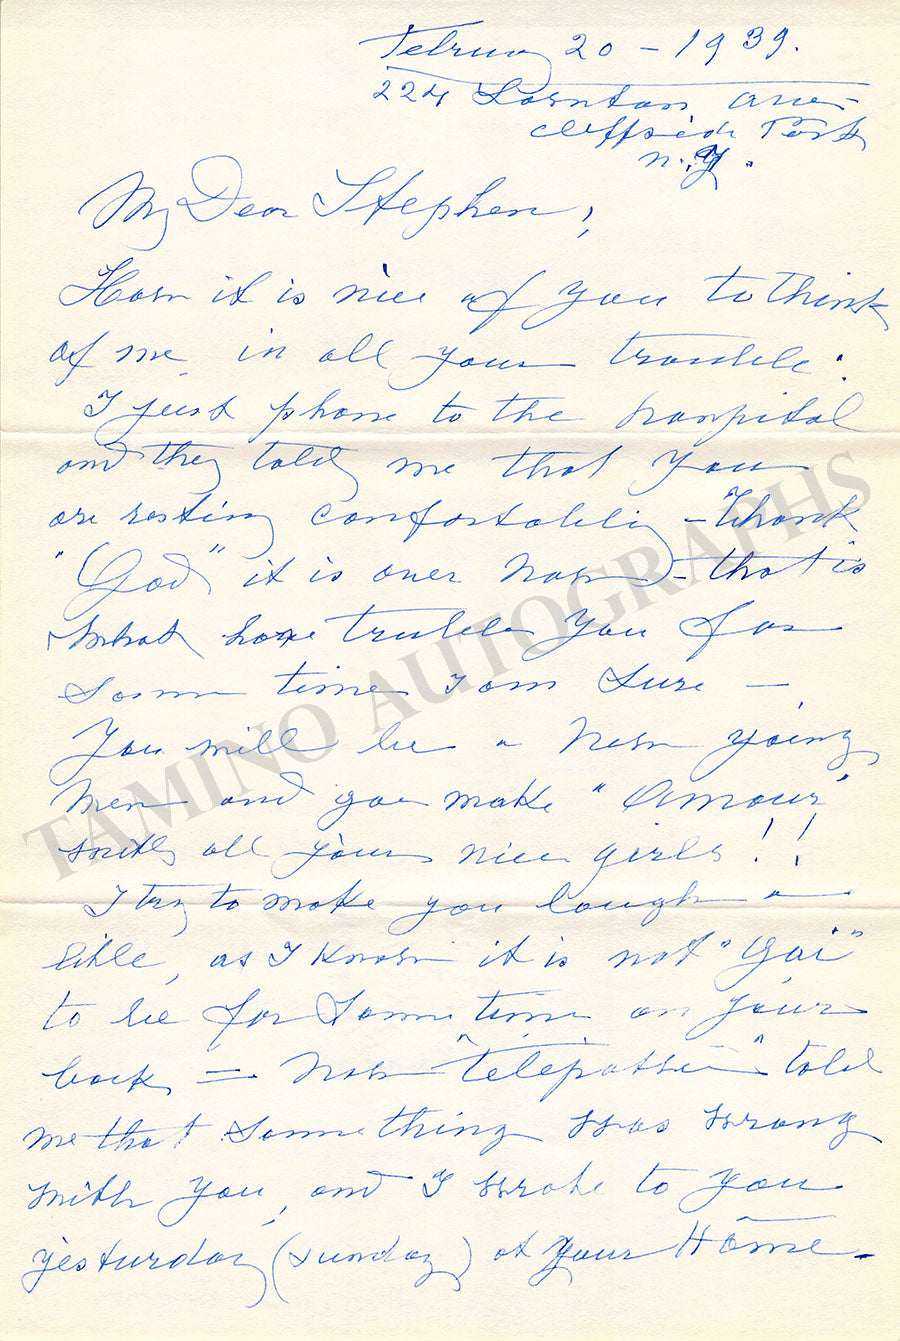 Februay 20 - 1939.
224 Lawnton ave-
Cliffside Park
N.Y.
My Dear Stephen,
How it is nice of you to think
of me, in all your trouble.
I just phone to the hanpital
and they told me that you
are resting comfortably - Thank
"God" it is over now - that is
what have truble you for
some time I am sure -
You will be a new young
men and goe make "Amour"
with all your nice girls!!
I try to make you laugh a
litle, as I know it is not "Gai"
to be for some time on your
back = now "telepatie" told
me that something was wrong
with you, and I wrote to you
yesturday (sunday) at your Home.
TAMINO AUTOGRAPHS